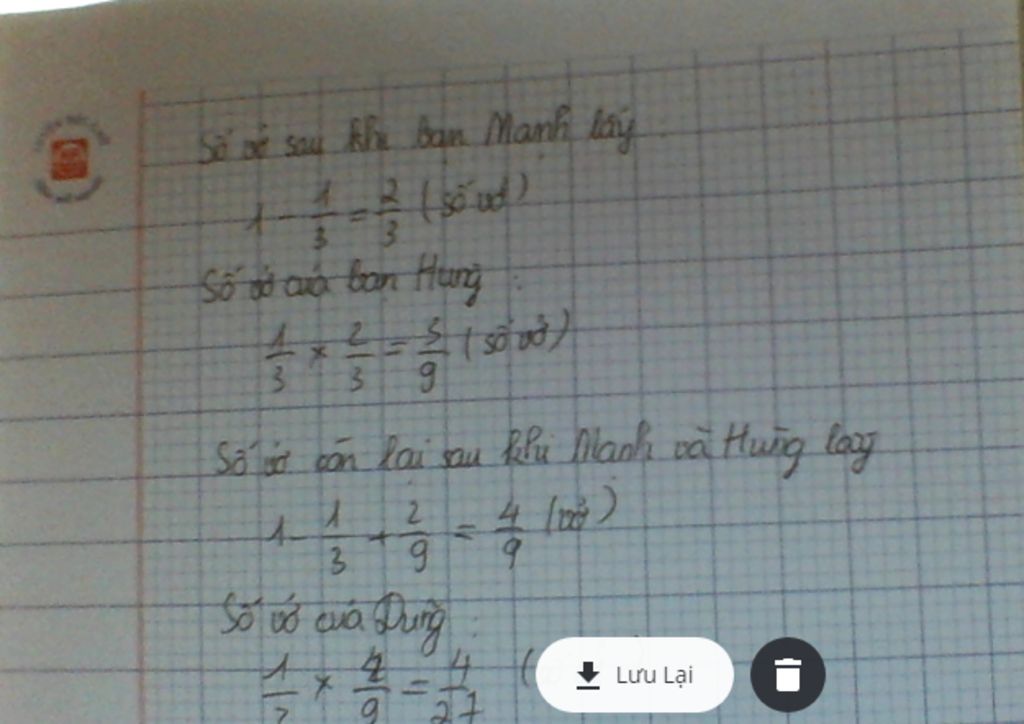 Số vở sau khi bạn Mạnh lấy
1 - 1/3 = 2/3 (số vở)
Số vở của bạn Hùng :
1/3 × 2/3 = 3/9 (số vở)
Số vở còn lại sau khi Mạnh và Hùng lấy
1 - 1/3 + 2/9 = 4/9 (vở)
Số vở của Dũng :
1/3 × 4/9 = 4/27 (
Lưu Lại